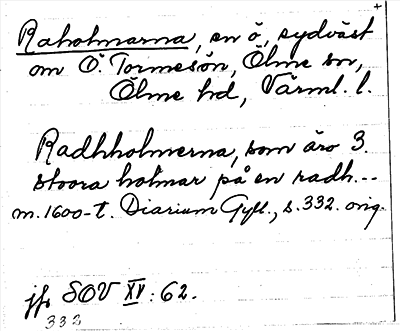 Raholmarna, en ö, sydväst
om Ö. Tormesön, Ölme sn,
Ölme hd, Värml. l.
Radhholmerna, som äro 3.
stoora holmar på en radh...
m. 1600-t. Diarium Gyll., s. 332. orig.
jfr SOV XV: 62.
332